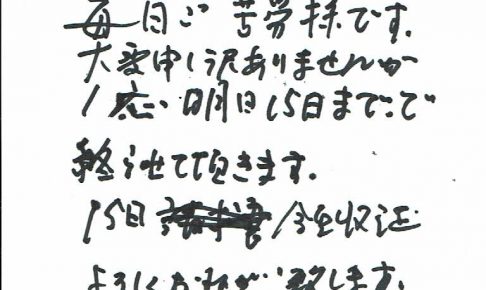 毎日ご苦労様です。
大変申し訳ありませんが
1応明日15日まででで
終らせて頂きます。
15日 領収証
よろしくおねがい致します。